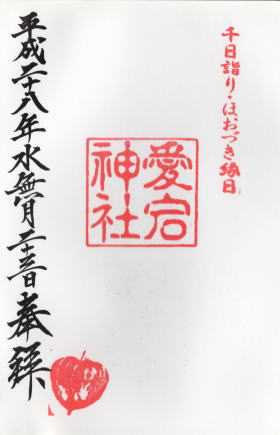 千日詣り・ほおづき縁日
愛宕
神社
平成二十八年水無月二十三日奉拝